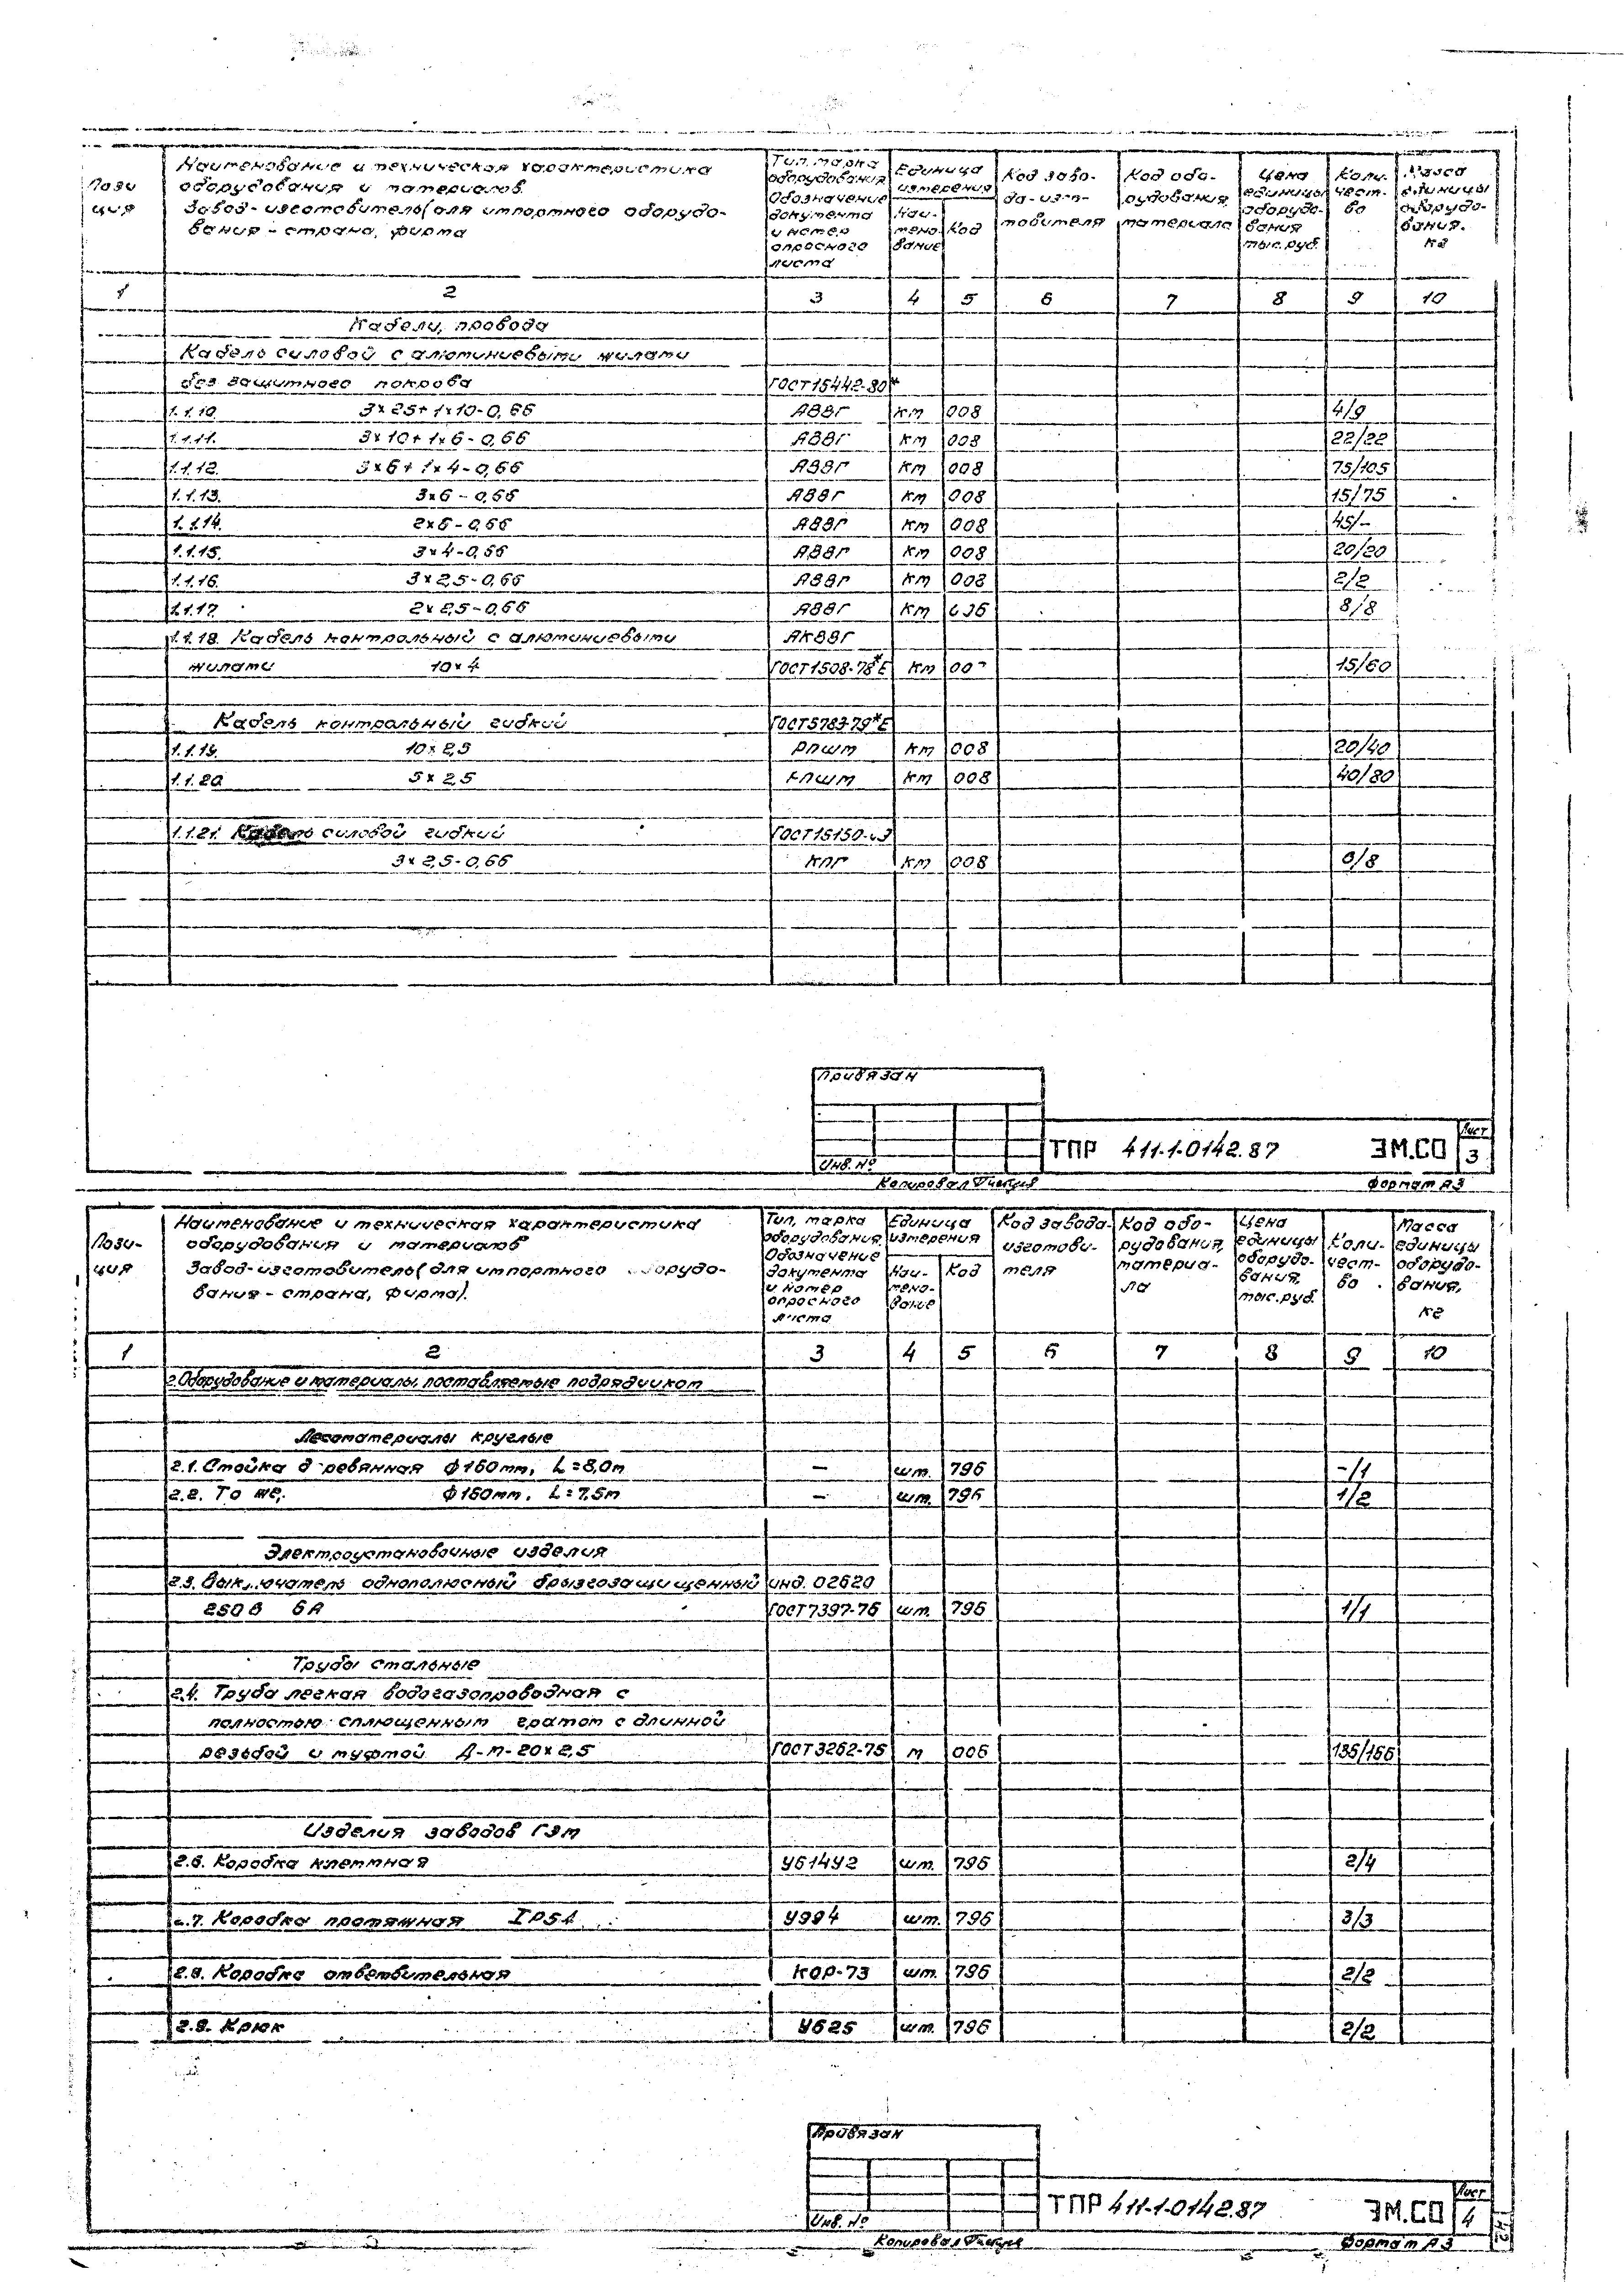 Пози
ция
Наименование и техническая характеристика
оборудования и материалов.
Завод-изготовитель (для импортного оборудо-
вания - страна, фирма
Тип, марка
оборудования
Обозначение
документа
и номер
опросного
листа
Единица
измерения
Наи-
мено-
вание
Код
Код заво-
да-изго-
товителя
Код обо-
рудования,
материала
Цена
единицы
оборудо-
вания
тыс.руб.
Коли-
чест-
во
Масса
единицы
оборудо-
вания.
кг
1 2 3 4 5 6 7 8 9 10
Кабели, провода
Кабель силовой с алюминиевыми жилами
без защитного покрова ГОСТ16442-80*
1.1.10. 3×25+1×10-0,66 АВВГ км 008 4/9
1.1.11. 3×10+1×6-0,66 АВВГ км 008 22/22
1.1.12. 3×6+1×4-0,66 АВВГ км 008 75/105
1.1.13. 3×6-0,66 АВВГ км 008 15/75
1.1.14. 2×6-0,66 АВВГ км 008 45/-
1.1.15. 3×4-0,66 АВВГ км 008 20/20
1.1.16. 3×2,5-0,66 АВВГ км 008 2/2
1.1.17. 2×2,5-0,66 АВВГ км 8/8
1.1.18. Кабель контрольный с алюминиевыми АКВВГ
жилами 10×4 ГОСТ1508-78*Е км 15/60
Кабель контрольный гибкий ГОСТ5783-79*Е
1.1.19. 10×2,5 РПШМ км 008 20/40
1.1.20. 5×2,5 РПШМ км 008 40/80
1.1.21. Кабель силовой гибкий
3×2,5-0,66 КПГ км 008 0/8
Привязан
Инв. №
ТПР 411-1-0142.87 ЭМ.СО
Лист
3
Копировал
Формат А3
Пози-
ция
Наименование и техническая характеристика
оборудования и материалов
Завод-изготовитель (для импортного оборудо-
вания - страна, фирма).
Тип, марка
оборудования
Обозначение
документа
и номер
опросного
листа
Единица
измерения
Наи-
мено-
вание
Код
Код завода-
изготови-
теля
Код обо-
рудования,
материа-
ла
Цена
единицы
оборудо-
вания,
тыс.руб.
Коли-
чест-
во
Масса
единицы
оборудо-
вания,
кг
1 2 3 4 5 6 7 8 9 10
2. Оборудование и материалы, поставляемые подрядчиком
Лесоматериалы круглые
2.1. Стойка деревянная ф160мм, L=8,0м - шт. 796 -/1
2.2. То же, ф160мм, L=7,5м - шт. 796 1/2
Электроустановочные изделия
2.3. Выключатель однополюсный брызгозащищенный инд. 02620
250В 6А ГОСТ7397-76 шт. 796 1/1
Трубы стальные
2.4. Труба легкая водогазопроводная с
полностью сплющенным гратом с длинной
резьбой и муфтой Д-М-20×2,5 ГОСТ3262-75 м 006 135/166
Изделия заводов ГЭМ
2.6. Коробка клеммная У614У2 шт. 796 2/4
2.7. Коробка протяжная IP54 У994 шт. 796 3/3
2.8. Коробка ответвительная КОР-73 шт. 796 2/2
2.9. Крюк У625 шт. 796 2/2
Привязан
Инв. №
ТПР 411-1-0142.87 ЭМ.СО
Лист
4
Копировал
Формат А3